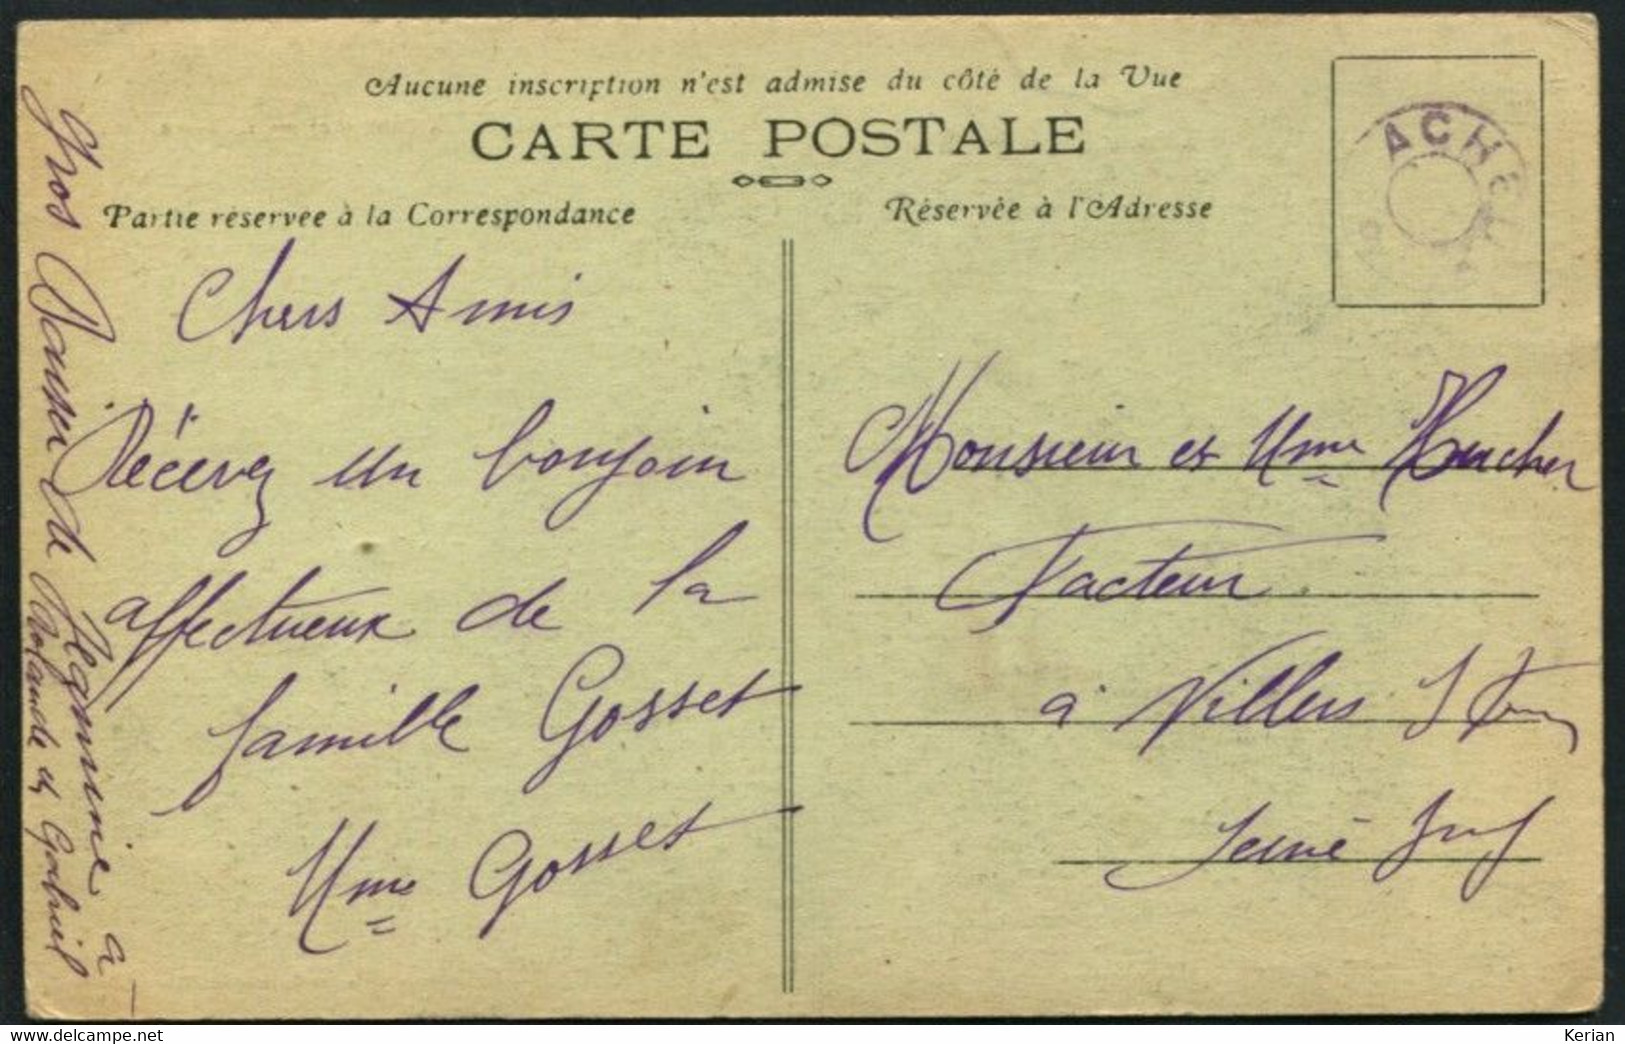 Aucune inscription n'est admise du côté de la Vue
CARTE POSTALE
Partie réservée à la Correspondance
Réservée à l'Adresse
ACHE
Chers Amis
Récevez un bonjour
affectueux de la
famille Gosset
Mme Gosset
Gros Baiser de Germinie à
Rolande et Gabriel
Monsieur et Mme Hucher
Facteur
à Villers
Seine Inf
delcampe.net
Kerian